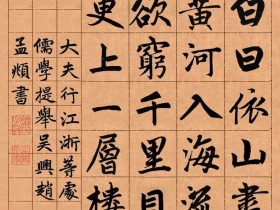 白日依山盡
黃河入海流
欲窮千里目
更上一層樓
大夫行江浙等處
儒學提舉吳興趙
孟頫書